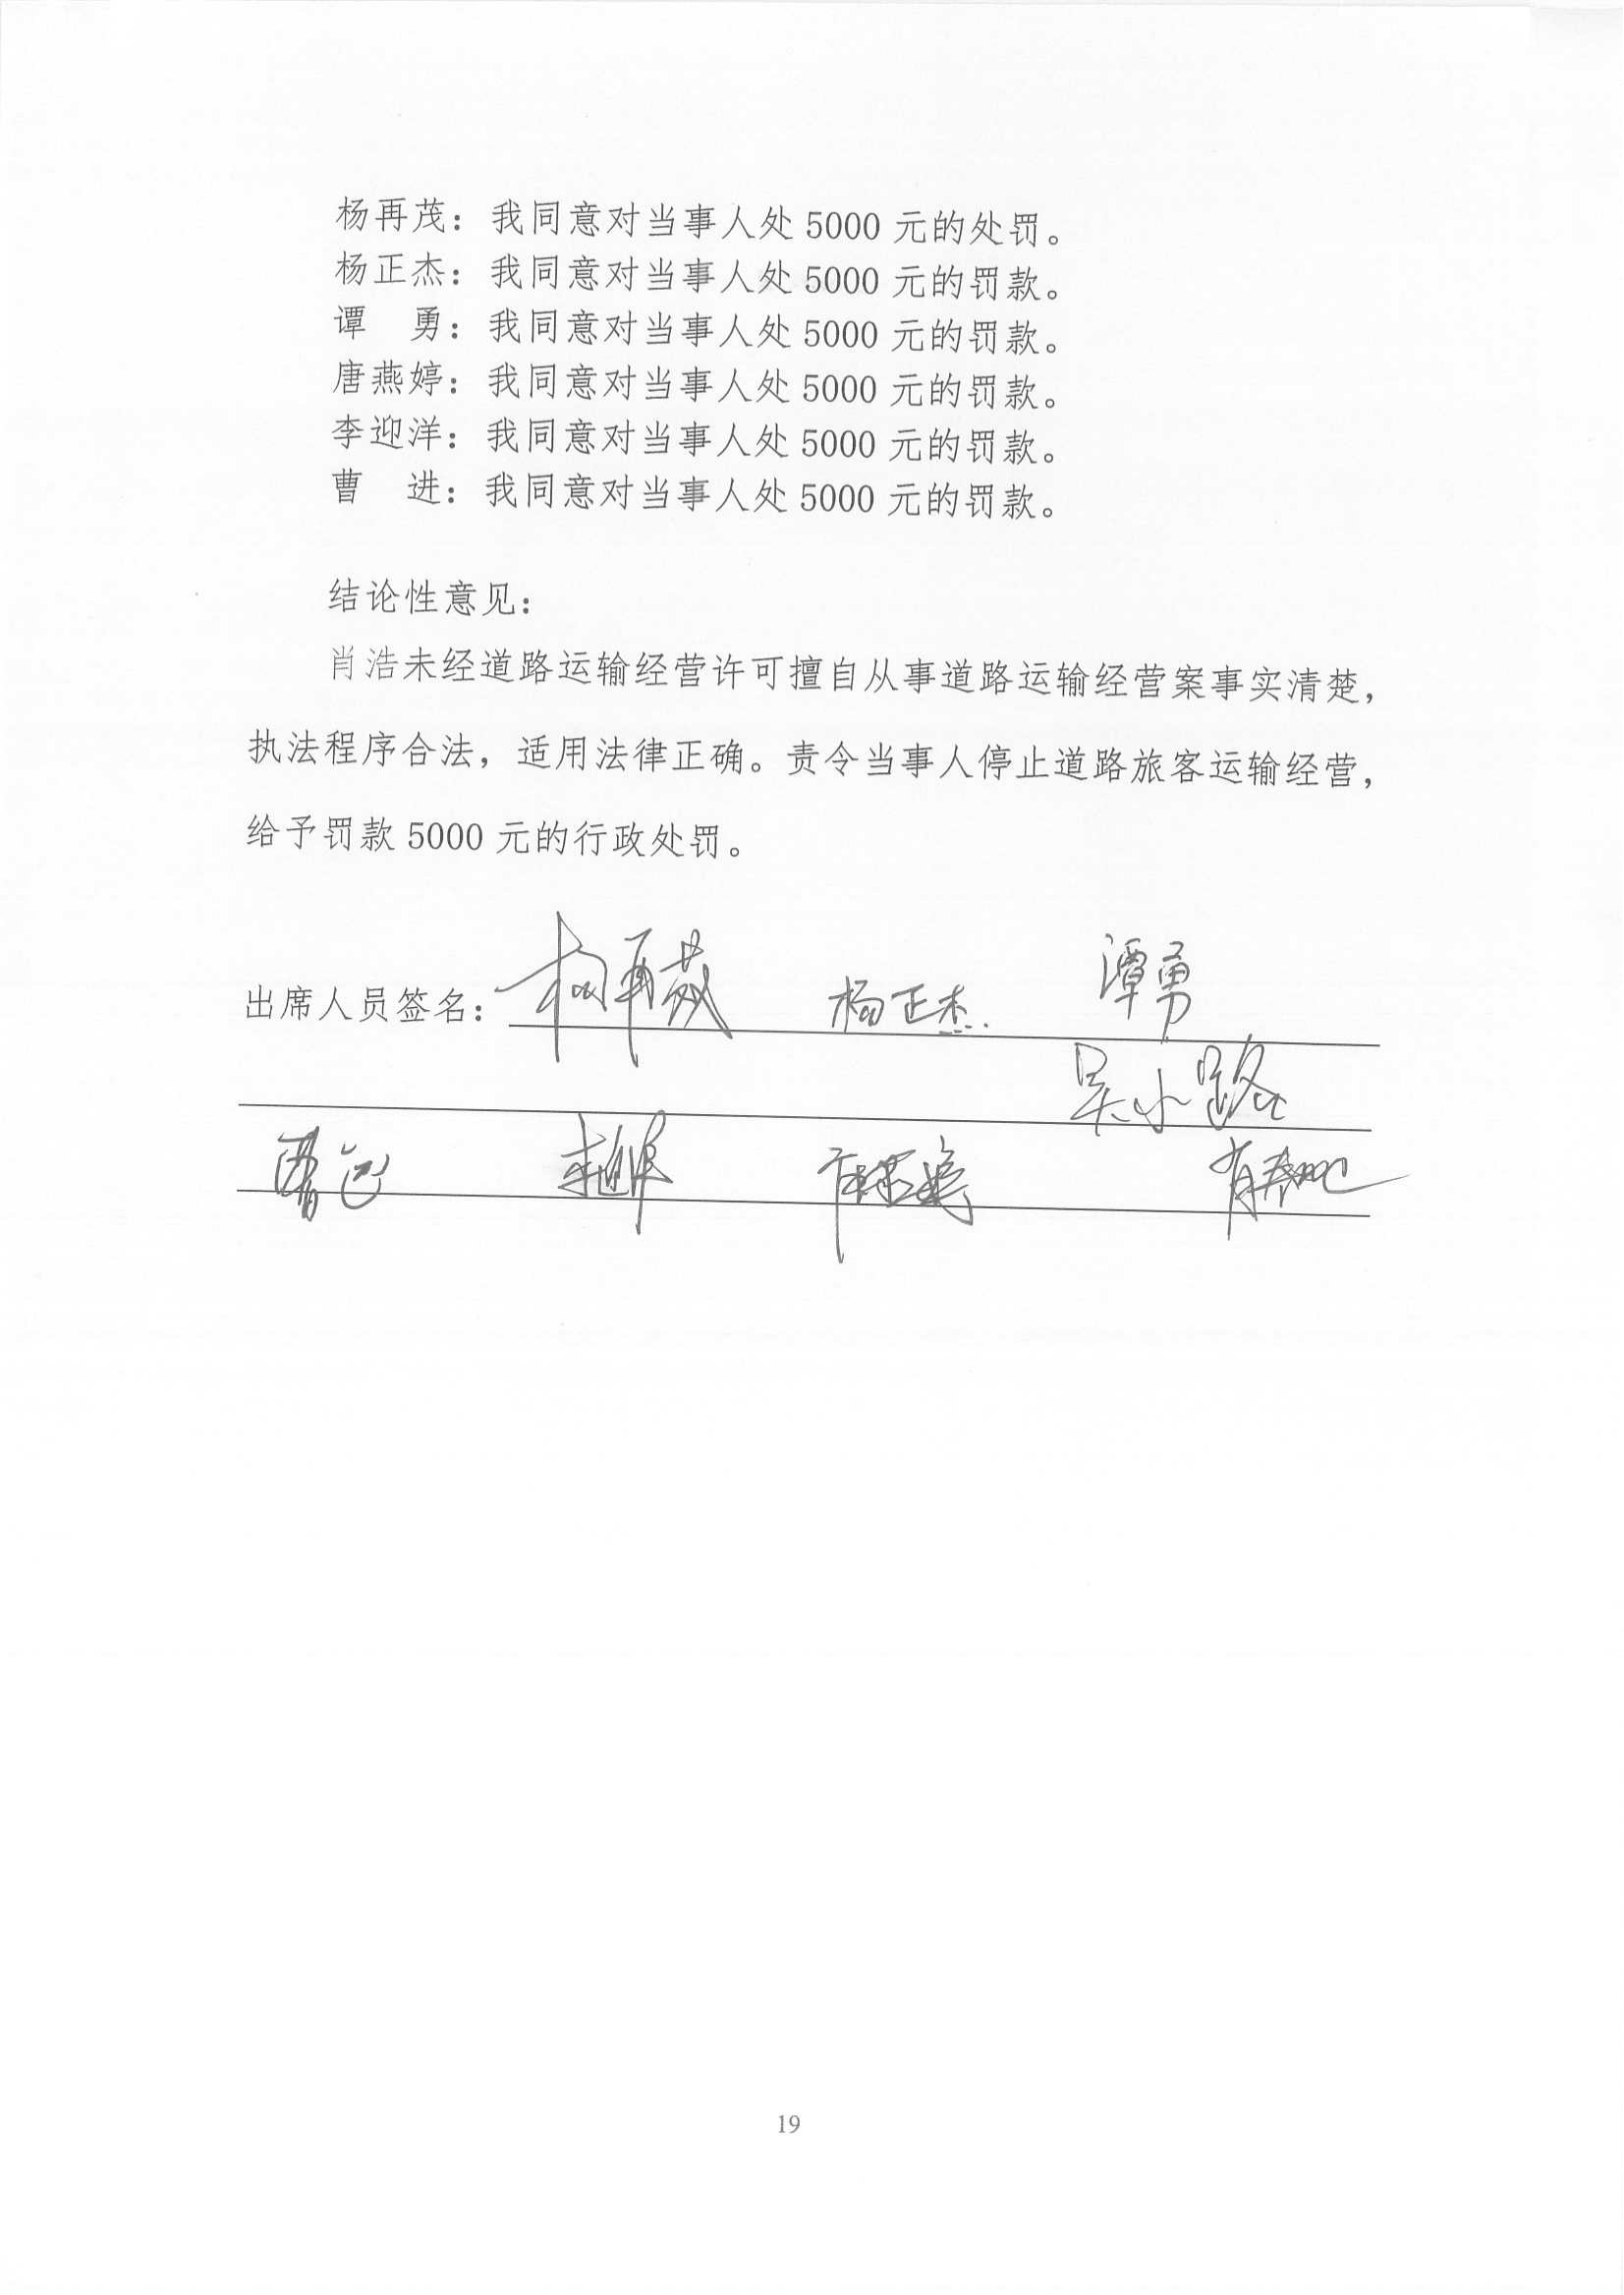 杨再茂：我同意对当事人处 5000 元的处罚。
杨正杰：我同意对当事人处 5000 元的罚款。
谭　勇：我同意对当事人处 5000 元的罚款。
唐燕婷：我同意对当事人处 5000 元的罚款。
李迎洋：我同意对当事人处 5000 元的罚款。
曹　进：我同意对当事人处 5000 元的罚款。
结论性意见：
肖浩未经道路运输经营许可擅自从事道路运输经营案事实清楚，
执法程序合法，适用法律正确。责令当事人停止道路旅客运输经营，
给予罚款 5000 元的行政处罚。
出席人员签名：杨再茂 杨正杰 谭勇
吴小路
曹进 李迎洋 唐燕婷
19